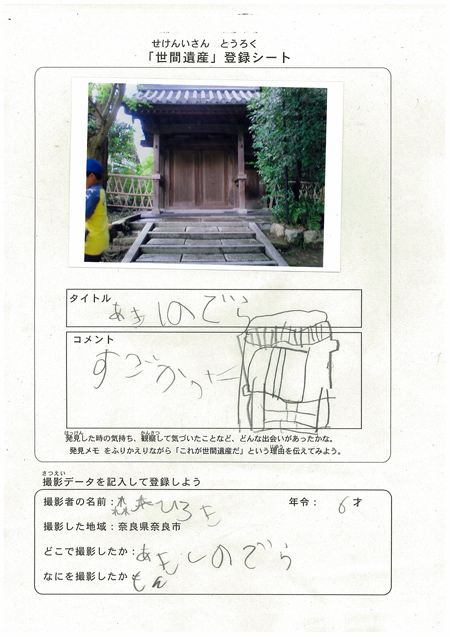 せけんいさん とうろく
「世間遺産」登録シート
タイトル
あきしのでら
コメント
すごかった
はっけん かんさつ
発見した時の気持ち、観察して気づいたことなど、どんな出会いがあったかな。
りゆう
発見メモ をふりかえりながら「これが世間遺産だ」という理由を伝えてみよう。
さつえい
撮影データを記入して登録しよう
撮影者の名前: 森 ひろき 年令: 6 才
撮影した地域: 奈良県奈良市
どこで撮影したか: あきしのでら
なにを撮影したか もん